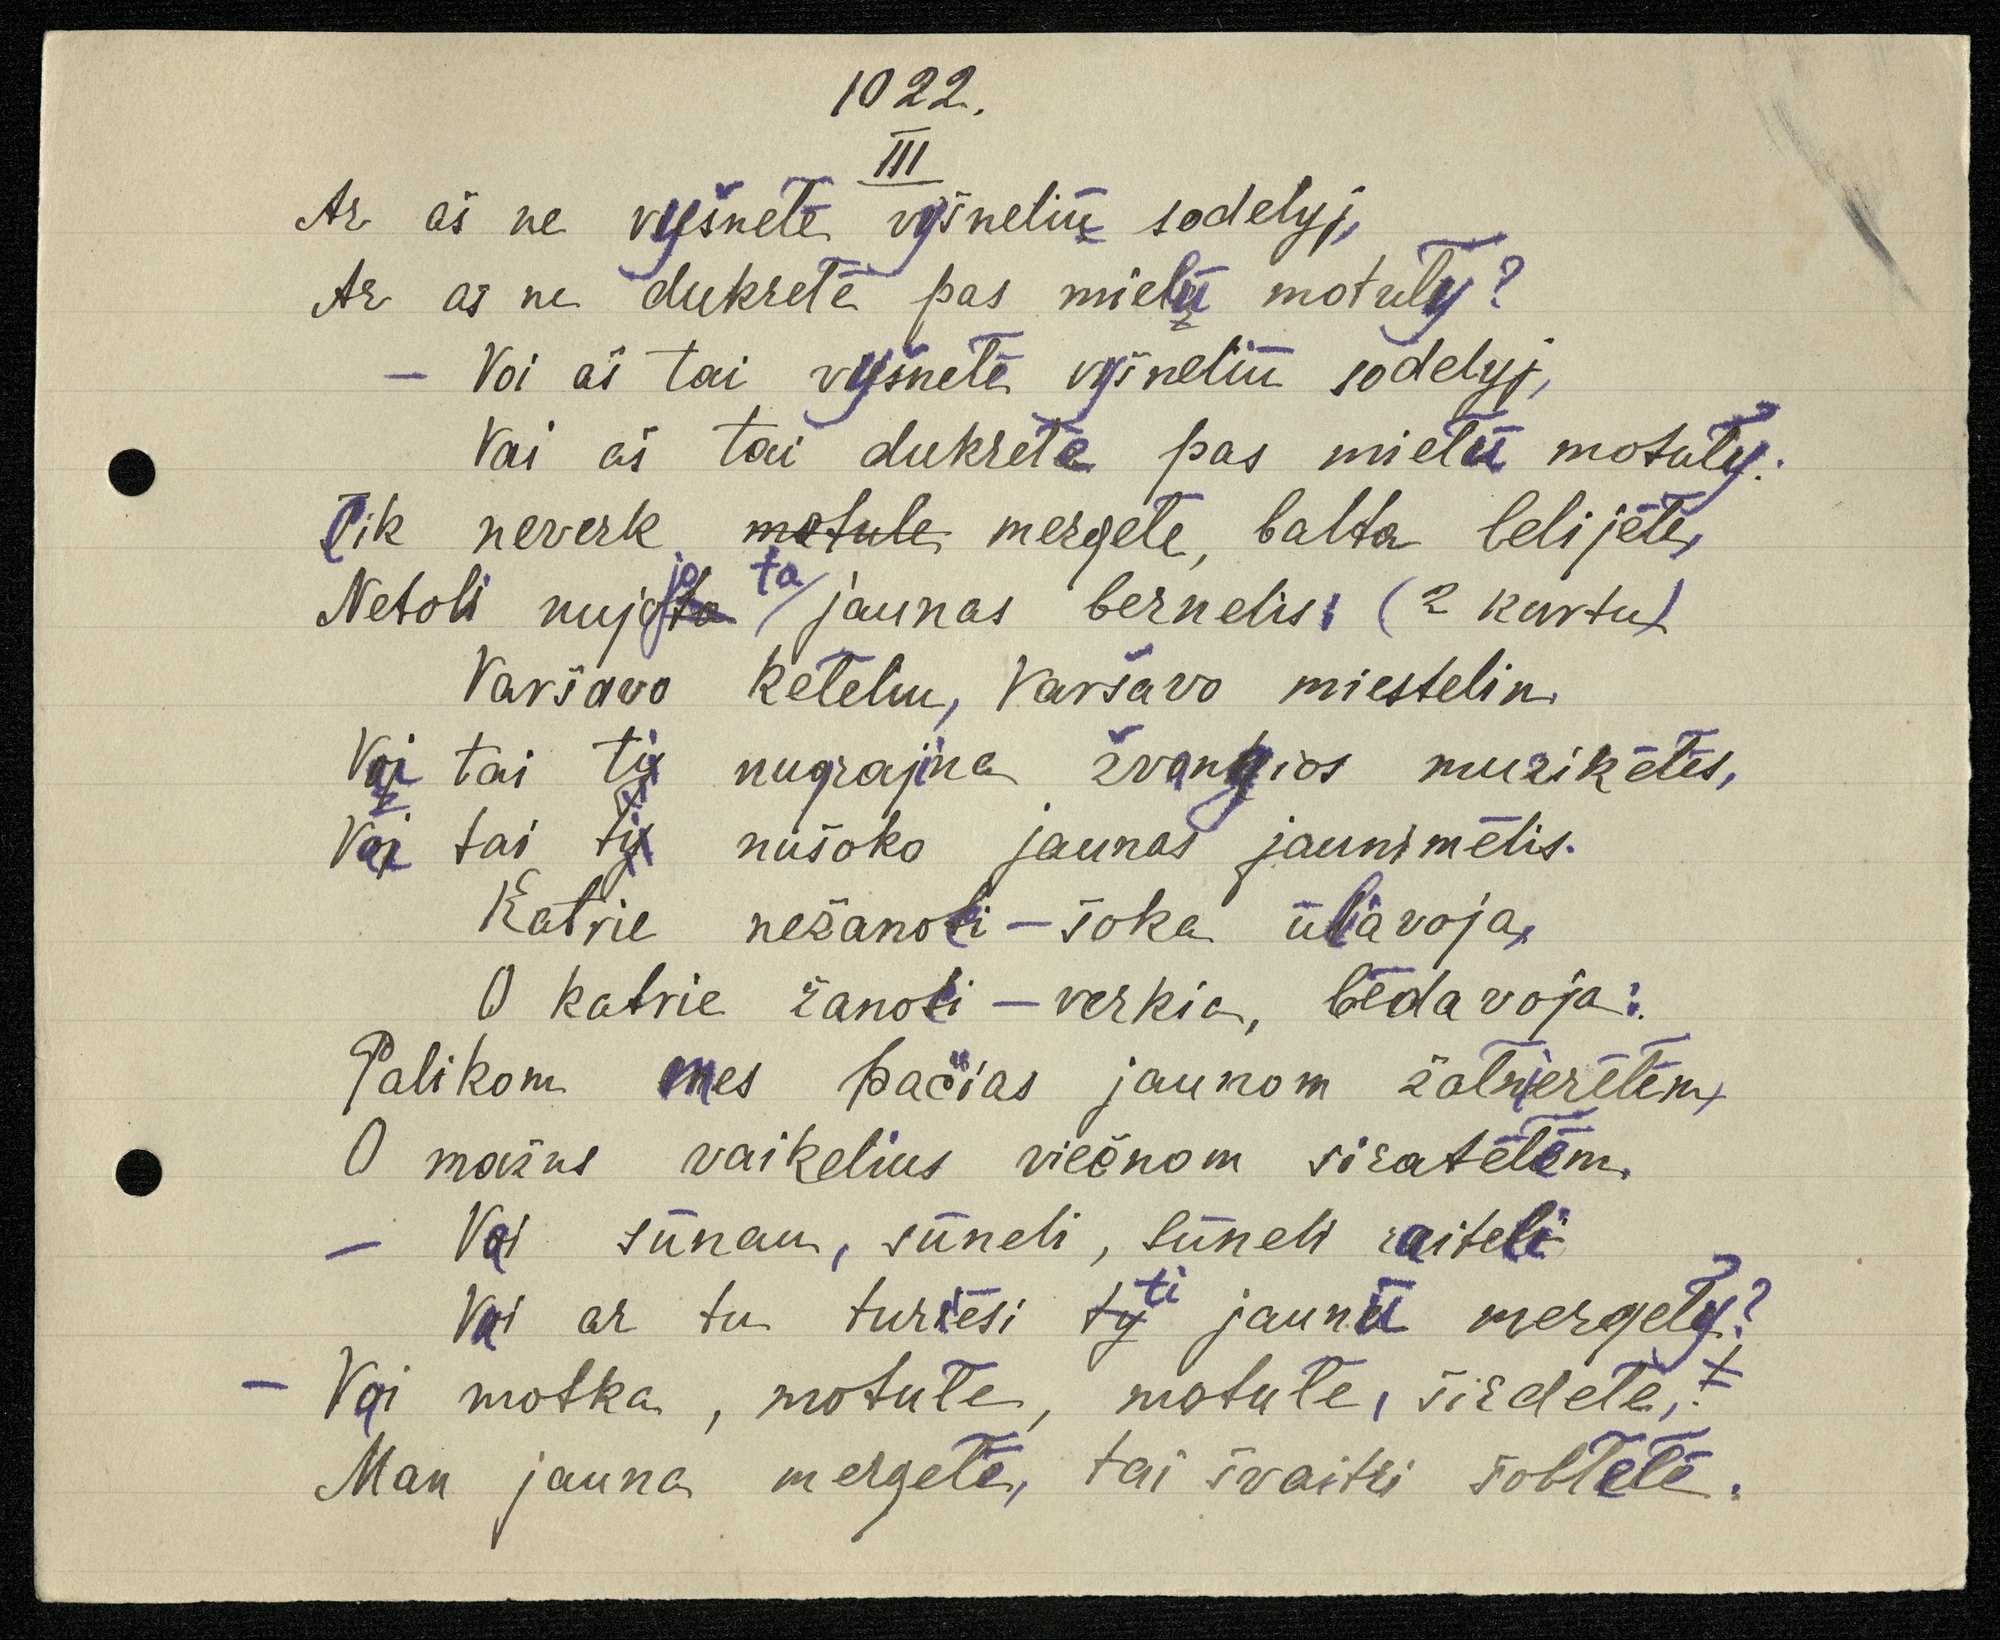 1022.
III
Ar aš ne vyšnelė vyšnelių sodelyj,
Ar aš ne dukrelė pas mielū motulŷ?
– Voi aš tai vyšnelė vyšneliū sodelyj,
Vai aš tai dukrelė pas mielū motulŷ.
Tik neverk motule mergele, balta lelijėle,
Netoli nujojo ta jaunas bernelis: (2 kartu)
Varšavo keleliu, Varšavo miestelin.
Vai tai ti nugrajina žvangios muzikėlės,
Vai tai ti nušoko jaunas jaunimėlis.
Katrie nežanoti – šoka ūliavoja,
O katrie žanoti – verkia, bėdavoja:
Palikom mes pačias jaunom žalnierėlėm,
O mažus vaikelius viečnom siratėlėm.
– Vai sūnau, sūneli, sūneli raiteli
Vai ar tu turiėsi ty ti jaunū mergelŷ?
– Vai motka, motule, motule, širdele,!
Man jauna mergelė, tai švaitri šoblelė.